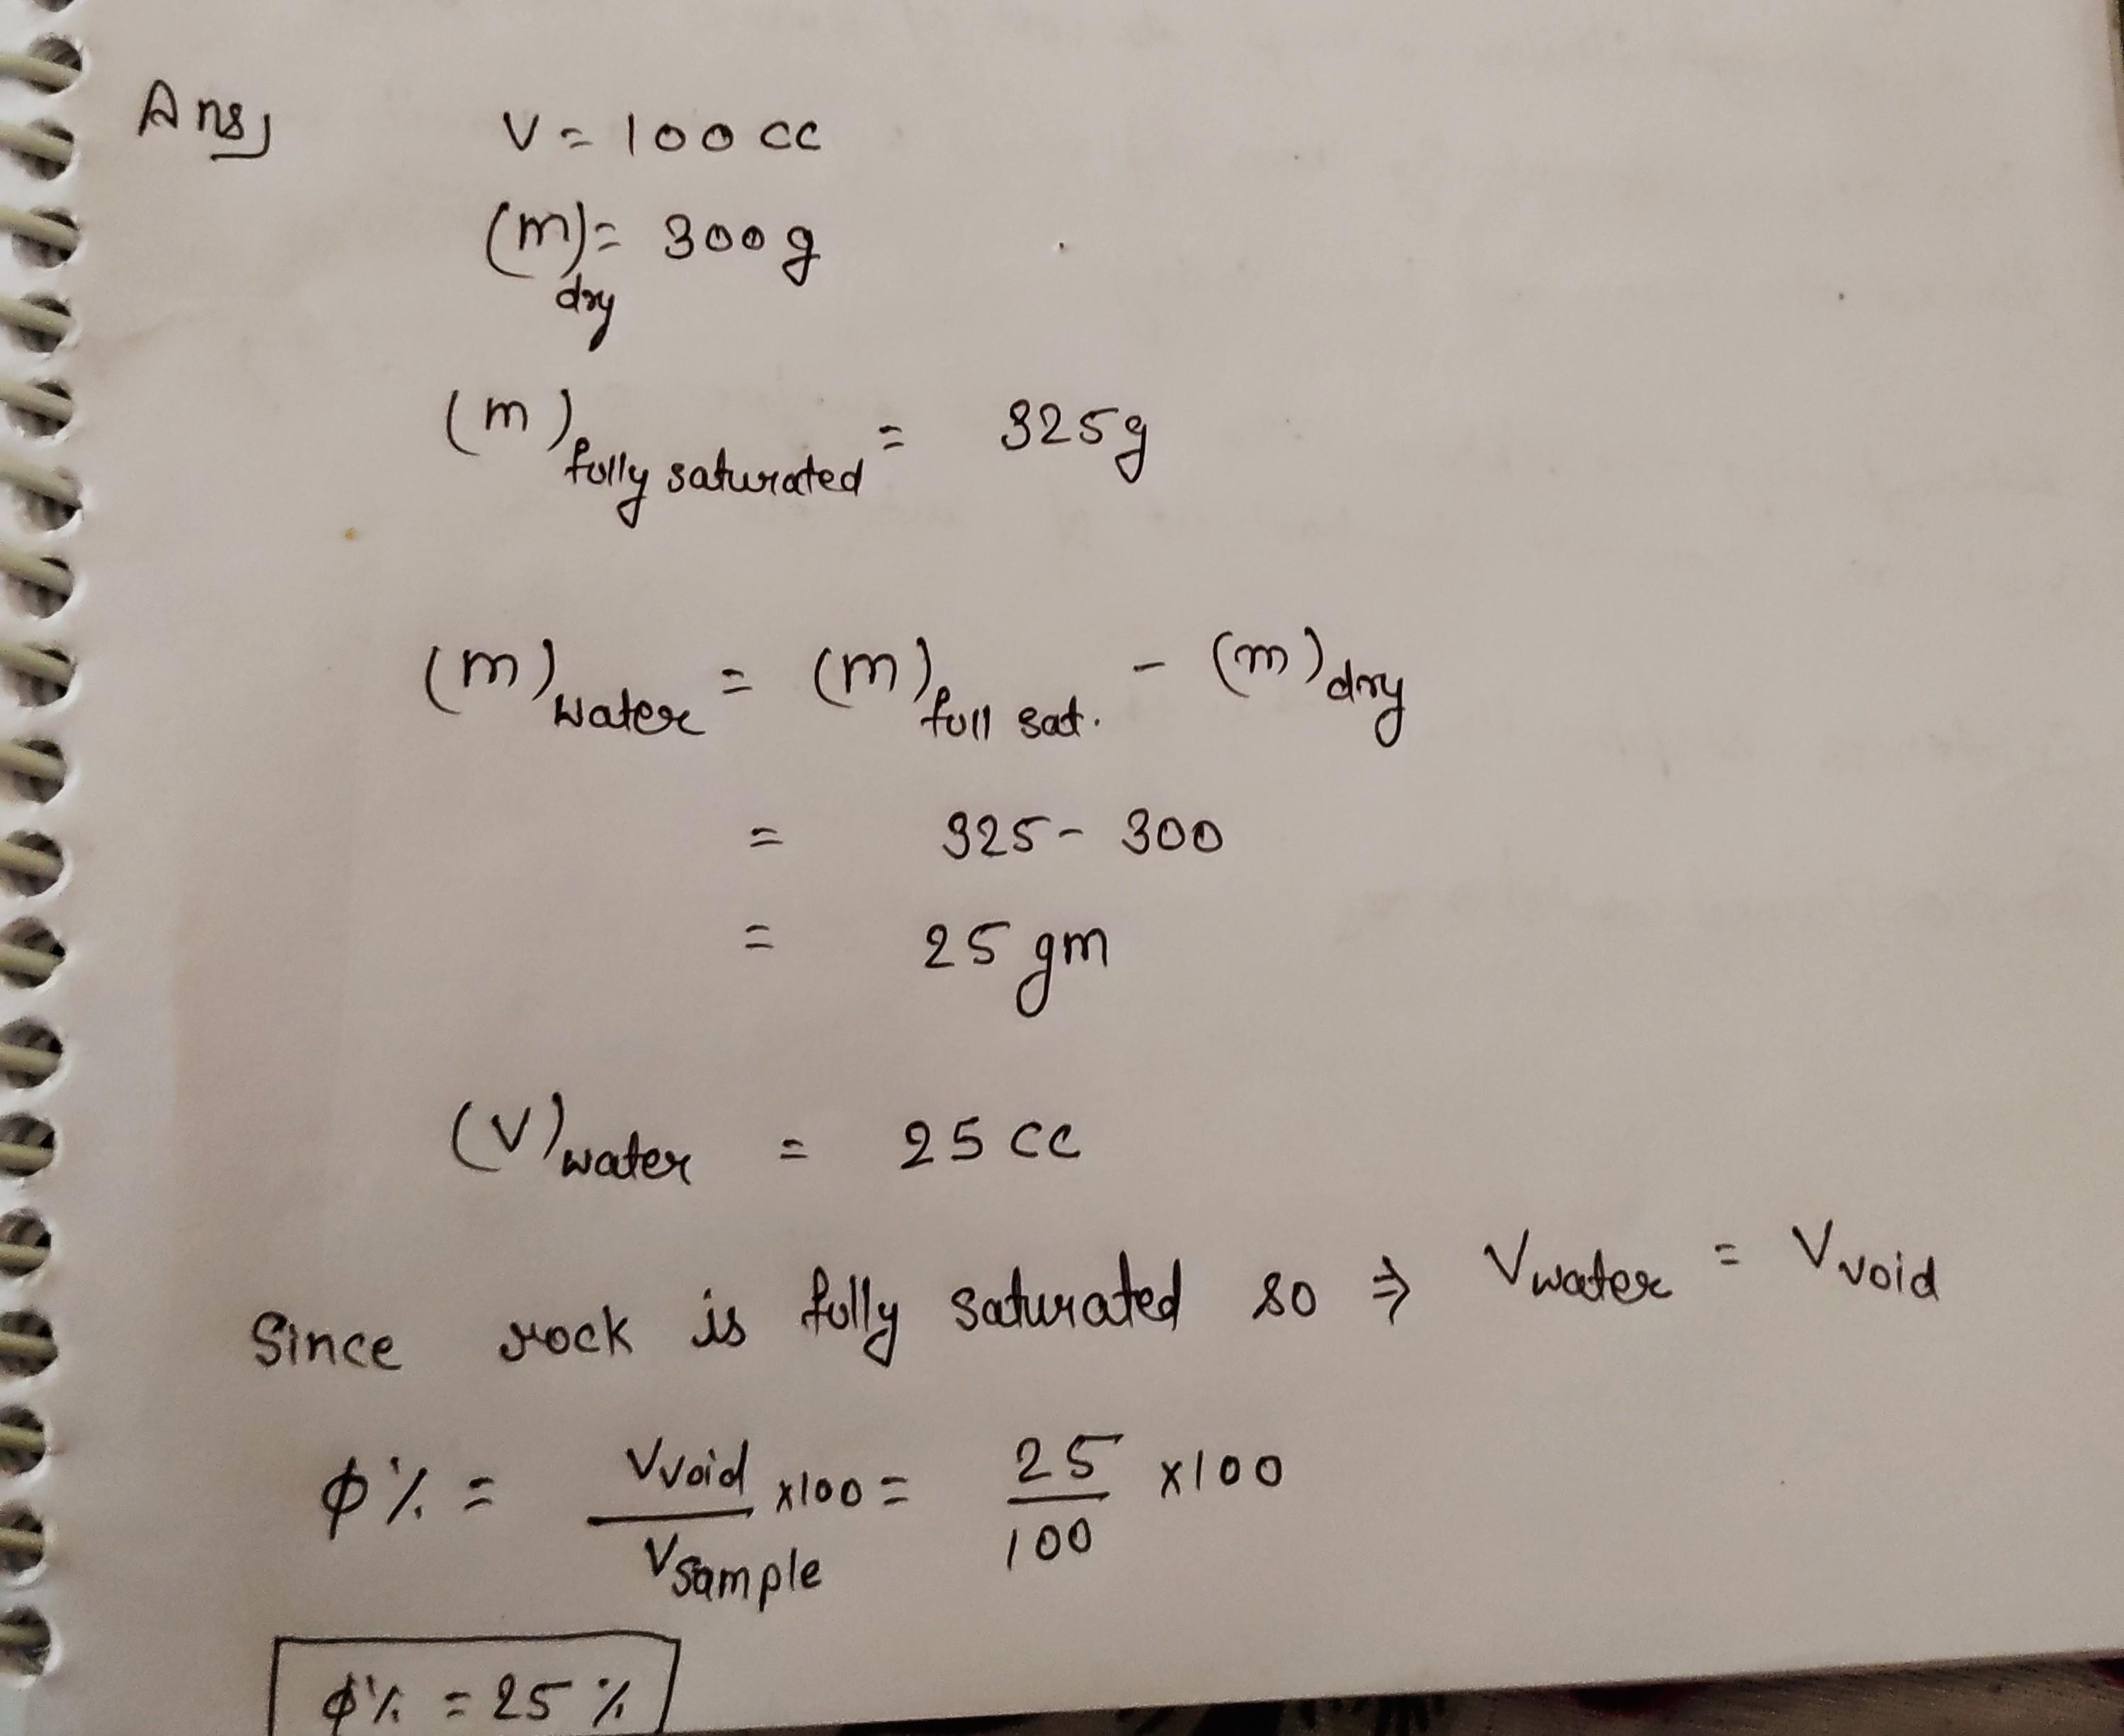 Ans,
V = 100 cc
(m)dry = 300 g
(m)fully saturated = 325 g
(m)water = (m)full sat. - (m)dry
= 325 - 300
= 25 gm
(V)water = 25 cc
Since rock is fully saturated so ⇒ Vwater = Vvoid
ϕ% = Vvoid/Vsample x100 = 25/100 x100
ϕ% = 25%